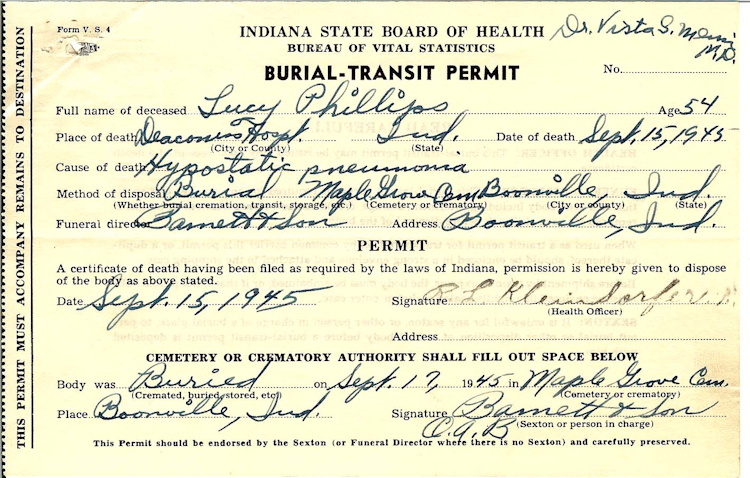 Form V. S. 4
INDIANA STATE BOARD OF HEALTH
Dr. Vista S.
M.D.
BUREAU OF VITAL STATISTICS
BURIAL-TRANSIT PERMIT
No.
Full name of deceased Lucy Phillips Age 54
Place of death Deaconess Hospt. Ind. Date of death Sept. 15, 1945
(City or County) (State)
Cause of death Hypostatic pneumonia
Method of disposal Burial Maple Grove Cem Boonville, Ind.
(Whether burial cremation, transit, storage, etc.) (Cemetery or crematory) (City or county) (State)
Funeral director Barnett & Son Address Boonville, Ind.
PERMIT
A certificate of death having been filed as required by the laws of Indiana, permission is hereby given to dispose
of the body as above stated.
Date Sept. 15, 1945 Signature Kleindorfer
(Health Officer)
Address
CEMETERY OR CREMATORY AUTHORITY SHALL FILL OUT SPACE BELOW
Body was Buried on Sept. 17, 1945 in Maple Grove Cem.
(Cremated, buried, stored, etc.) (Cemetery or crematory)
Place Boonville, Ind. Signature Barnett & Son
C.A.B (Sexton or person in charge)
This Permit should be endorsed by the Sexton (or Funeral Director where there is no Sexton) and carefully preserved.
THIS PERMIT MUST ACCOMPANY REMAINS TO DESTINATION